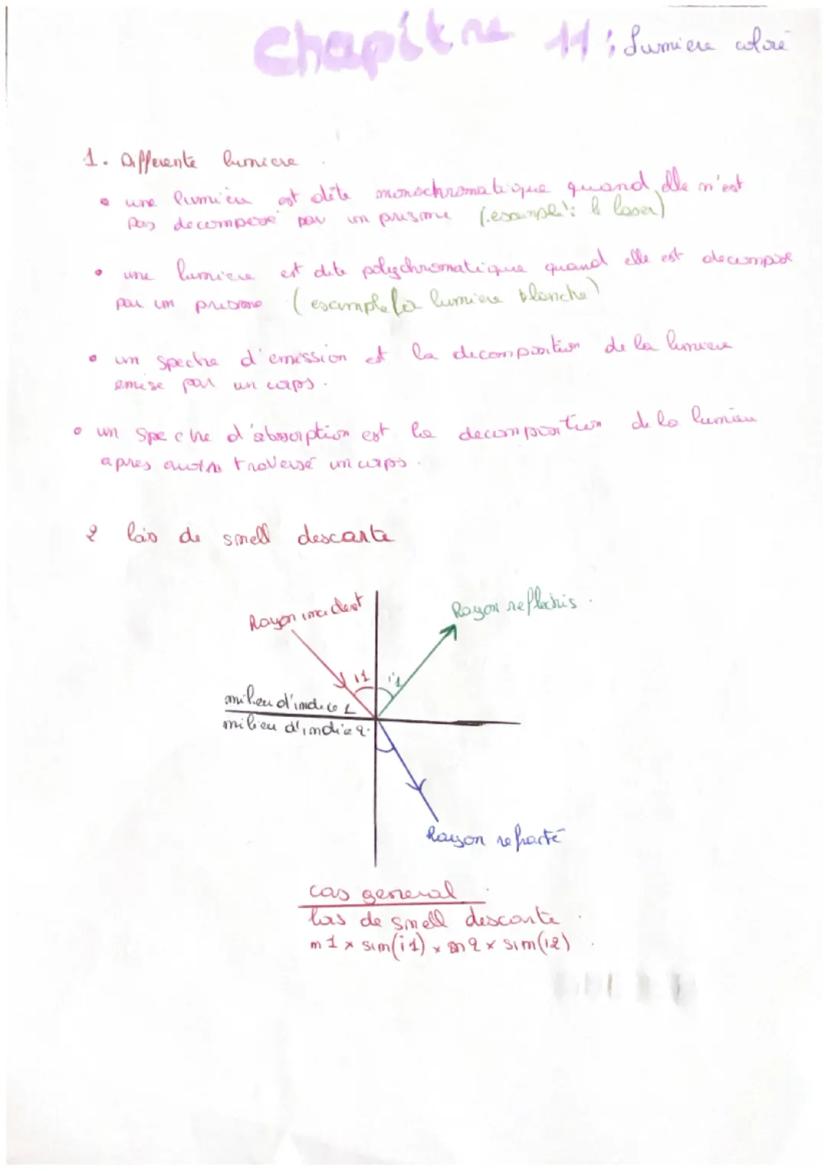 Chapitre 11 : Lumiere coloré
1. Differente lumiere
• une lumiere est dite monochromatique quand elle n'est
pas decomposé par un prisme (exemple : le laser)
• une lumiere est dite polychromatique quand elle est decomposé
par un prisme (exemple la lumiere blanche)
• un spectre d'emission est la decomposition de la lumiere
emise par un corps.
• un spectre d'absorption est la decomposition de la lumiere
apres avoir traversé un corps.
2 lois de snell descarte
Rayon incident
Rayon reflechis.
i1 i1
milieu d'indice 1
milieu d'indice 2
Rayon refracté
cas general
lois de snell descarte.
n1 x sin(i1) x n2 x sin(i2)